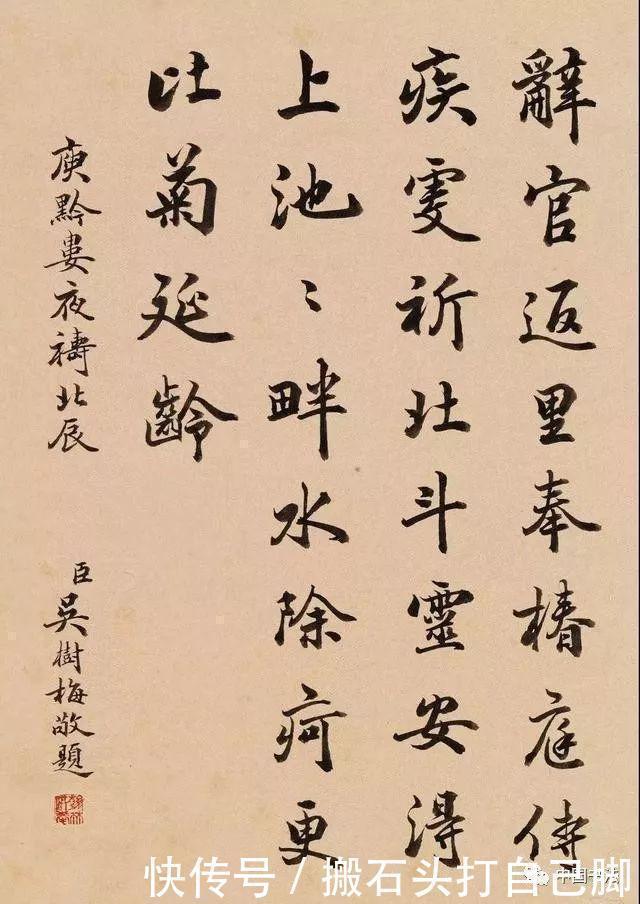 辭官返里奉椿庭侍
疾虔祈北斗靈安得
上池〻畔水除疴更
比菊延齡
庾黔婁夜禱北辰
臣吳樹梅敬題
快传号 / 搬石头打自己脚